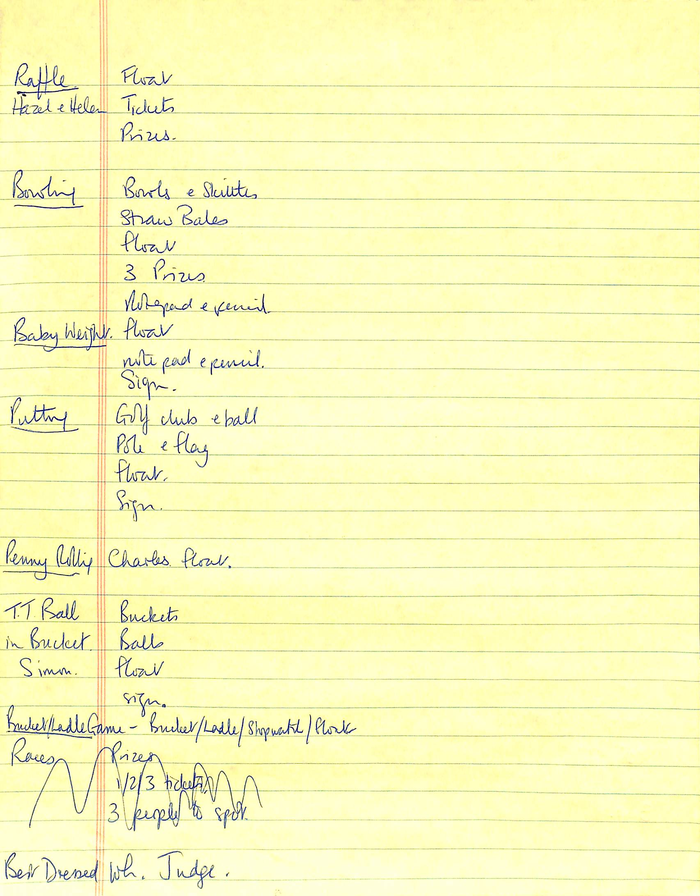 Raffle Float
Hazel & Helen Tickets
Prizes.
Bowling Bowls & Skittles
Straw Bales
float
3 Prizes
Notepad & pencil.
Baby Weight. float
note pad & pencil.
Sign.
Putting Golf club & ball
Pole & flag
float.
Sign.
Penny Rolling Charles float.
T.T. Ball Buckets
in Bucket. Balls
Simon. float
sign.
Bucket/Ladle Game - Bucket/Ladle/Stopwatch/float
Races Prizes
1/2/3 tickets.
3 people to spot.
Best Dressed Wh. Judge.